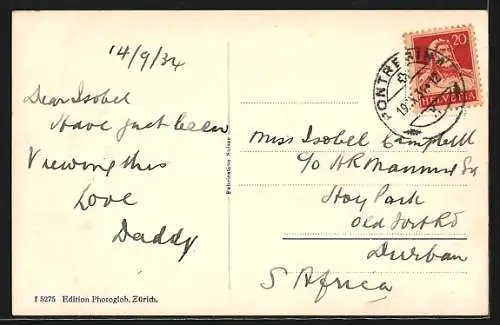 14/9/34
Dear Isobel
Have just been
Viewing this
Love
Daddy
f 5275 Edition Photoglob, Zürich.
Fabrication Suisse
20
HELVETIA
PONTRESINA
Miss Isobel Campbell
c/o HR Manning Esq
Hoy Park
Old Fort Rd
Durban
S Africa